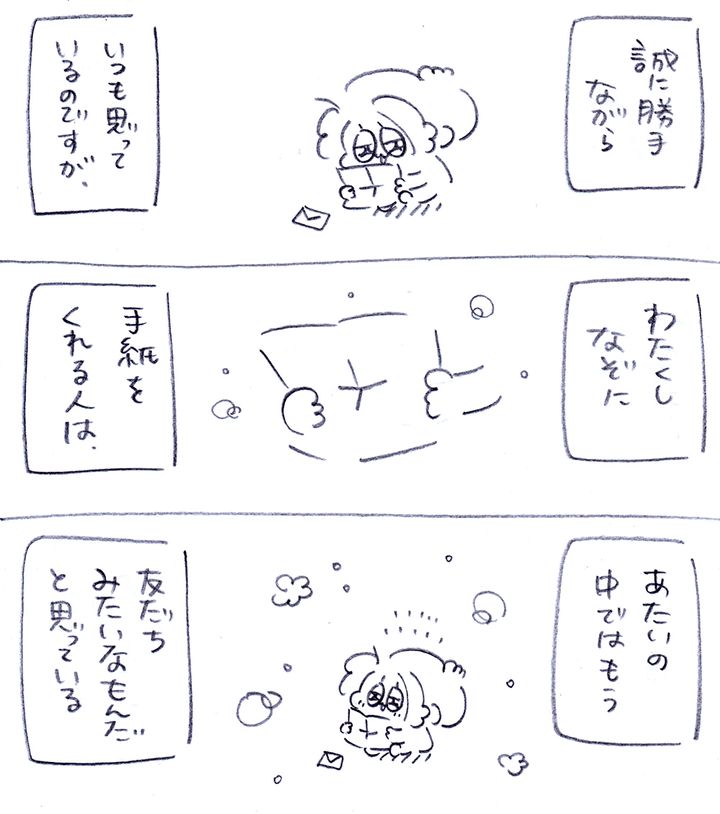 誠に勝手
ながら
いつも思って
いるのですが、
わたくし
なぞに
手紙を
くれる人は、
あたいの
中ではもう
友だち
みたいなもんだ
と思っている